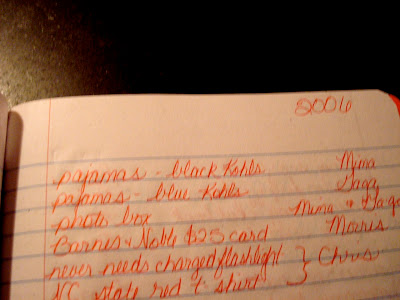 2006
pajamas - black Kohls Mima
pajamas - blue Kohls Gaga
photo box Mima + Gaga
Barnes & Noble $25 card Morris
never needs charged flashlight } Chris
NC state red t-shirt